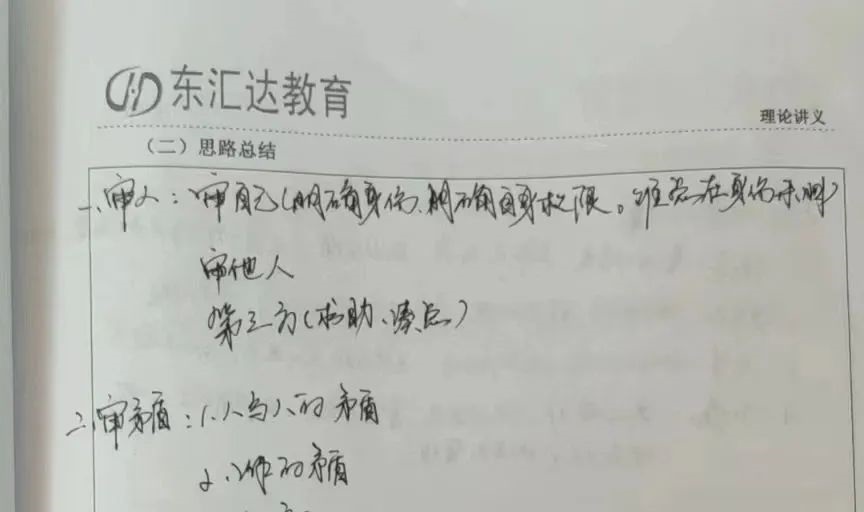 东汇达教育
理论讲义
（二）思路总结
一、审人：审自己（明确身份、明确自身权限。难点在身份不明）
审他人
第三方（求助、
二、审矛盾：1.人与人的矛盾
2.工作的矛盾